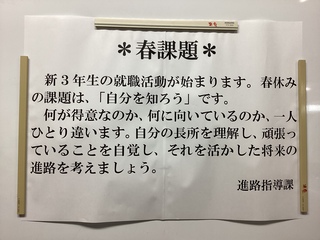 ＊春課題＊
新３年生の就職活動が始まります。春休み
の課題は、「自分を知ろう」です。
何が得意なのか、何に向いているのか、一人
ひとり違います。自分の長所を理解し、頑張っ
ていることを自覚し、それを活かした将来の
進路を考えましょう。
進路指導課